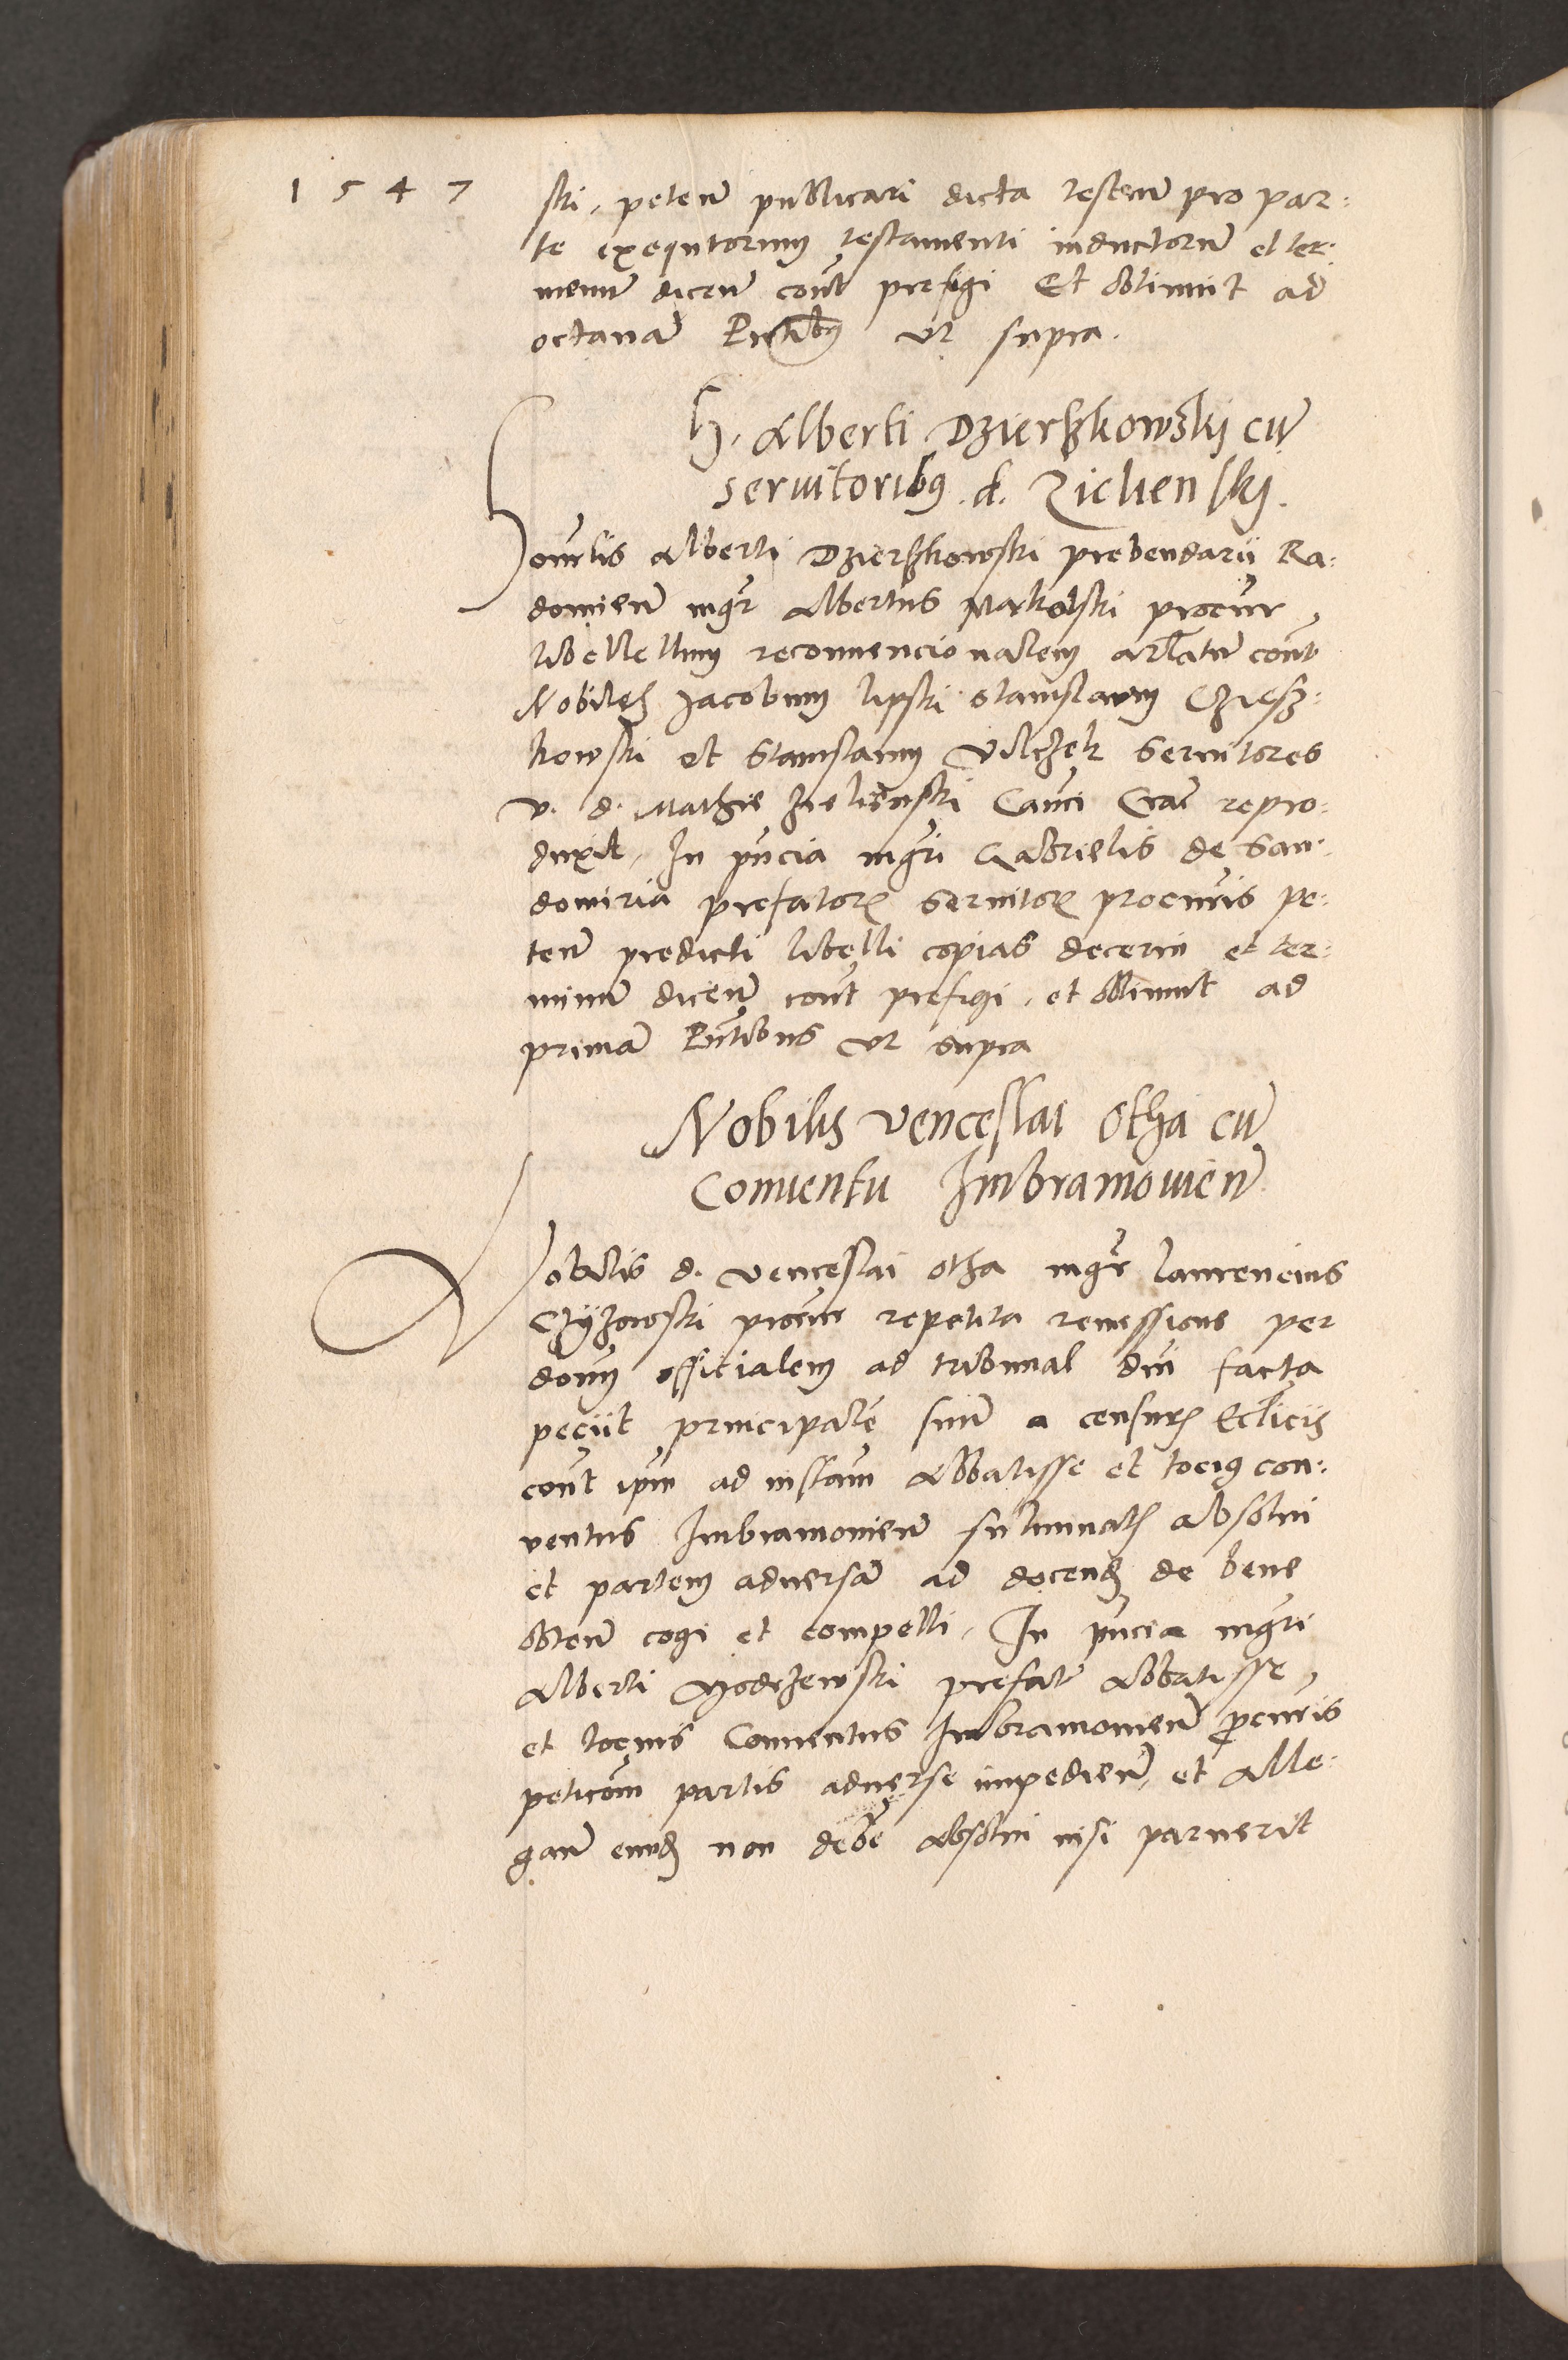 1547
ski, peten̄ publicari dicta testem̄ pro par:
te exequtorum testamenti inductorum̄ et ter:
menum̄ dicen̄ cont̄ prefigi Et obtinuit ad
octauam̄ Pn̄tibus vt supra.
H. Alberti Dzierszkowskj cum̄
seruitoribus d. Zielienskj.
Honorlis Alberti Dzierszkowski prebendarii Ra:
domien̄ mgr̄ Albertus Markolski procur̄
libellellum reconuencionalem arl̄atum̄ cont̄
Nobiles Jacobum Lipski Stanislaum Czesz:
kowski et Stanislaum Vilczek Seruitores
v. d. Mathie Zielienski Can̄ci Crac̄ repro:
duxit, In pn̄cia mgr̄i Gabrielis de San:
domiria prefator̄ Seruitor̄ procur̄is pe:
ten̄ predicti libelli copias decerni et ter:
minum̄ dicen̄ cont̄ prefigi, et obtinuit ad
primam̄ Pn̄tibus vt supra
Nobilis Venceslai Otha cum̄
Conuentu Imbramouien̄
Nobilis d. Venceslai Otha mgr̄ Laurencius
Czyzowski procur̄ repetita remissione per
donum officialem ad tribunal dn̄i facta
peciit principalem̄ suum̄ a censur̄ Ecclīcis
cont̄ ip̄m ad instan̄ Abbatisse et tocius con:
uentus Imbramouien̄ fulminatis absolui
et partem aduersam̄ ad docend̄ de bene
obten̄ cogi et compelli, In pn̄cia mgr̄i
Alberti Modrzewski prefate Abbatisse
et tocius Conuentus Imbramouien̄ procur̄is
peticom̄ partis aduerse impedien̄, et alle:
gan̄ eund̄ non deber̄e absolui nisi paruerit